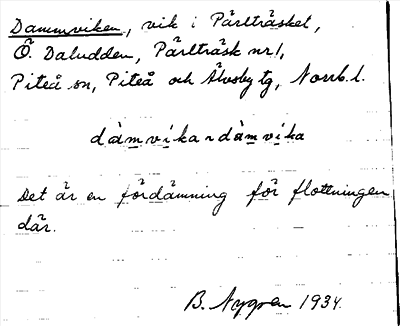 Dammviken, vik i Pärlträsket,
Ö. Daludden, Pärlträsk nr 1,
Piteå sn, Piteå och Älvsby tg, Norrb. l.
dàm̲v̲i̲ka ~ dàm̲v̲i̲ka
Det är en fördämning för flottningen
där.
B. Nygren 1934.